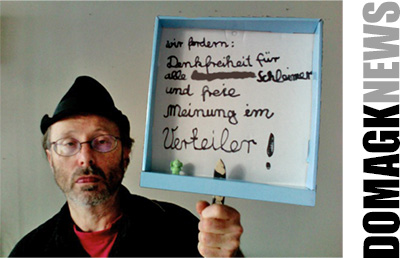 wir fordern:
Denkfreiheit für
alle Schleimer
und freie
Meinung im
Verteiler!
DOMAGKNEWS